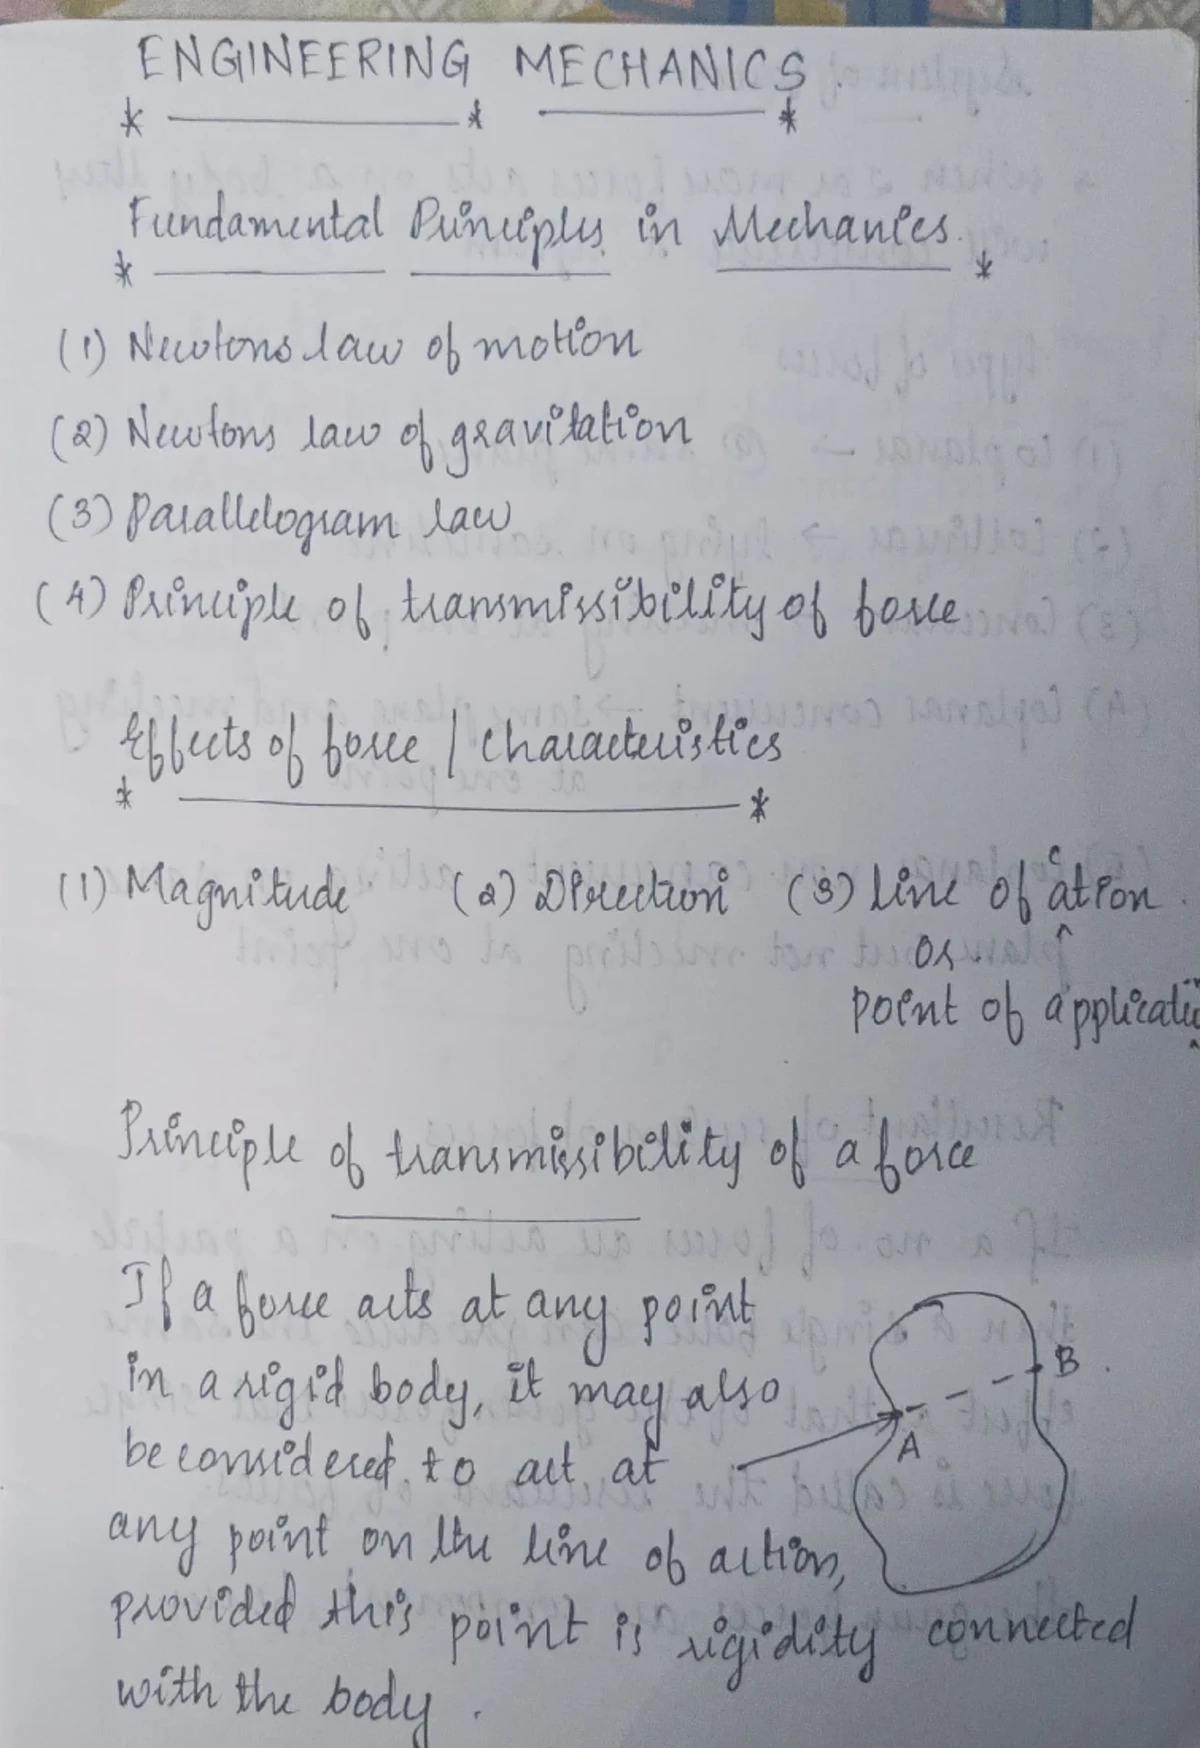 ENGINEERING MECHANICS
Fundamental Principles in Mechanics.
(1) Newtons law of motion
(2) Newtons law of gravitation
(3) Parallelogram law
(4) Principle of transmissibility of force
Effects of force / characteristics
(1) Magnitude (2) Direction (3) line of action
or
point of applicati
Principle of transmissibility of a force
If a force acts at any point
in a rigid body, it may also
be considered to act at
any point on the line of action,
provided this point is rigidity connected
with the body.
A
B